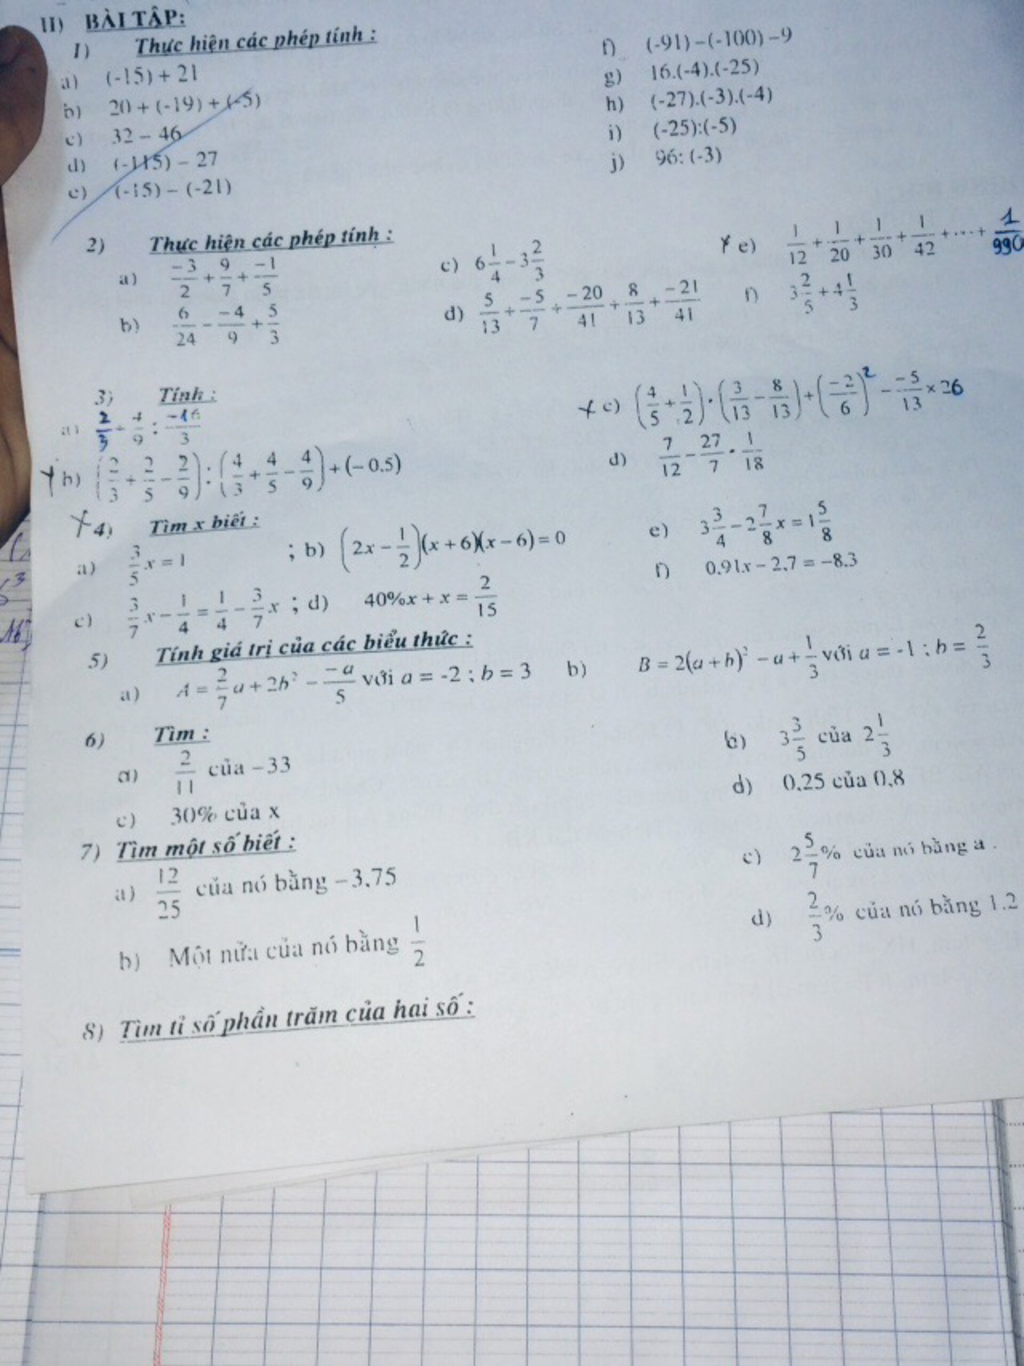 II) BÀI TẬP:
1) Thực hiện các phép tính :
a) (-15) + 21
b) 20 + (-19) + (-5)
c) 32 – 46
d) (-115) – 27
e) (-15) – (-21)
f) (-91) – (-100) – 9
g) 16.(-4).(-25)
h) (-27).(-3).(-4)
i) (-25):(-5)
j) 96: (-3)
2) Thực hiện các phép tính :
a) -3/2 + 9/7 + -1/5
b) 6/24 - -4/9 + 5/3
c) 6 1/4 - 3 2/3
d) 5/13 + -5/7 + -20/41 + 8/13 + -21/41
e) 1/12 + 1/20 + 1/30 + 1/42 + ... + 1/990
f) 3 2/5 + 4 1/3
3) Tính :
a) 2/3 - 4/9 : -16/3
b) (2/3 + 2/5 - 2/9) : (4/3 + 4/5 - 4/9) + (- 0.5)
c) (4/5 + 1/2) . (3/13 - 8/13) + (-2/6)² - -5/13 × 26
d) 7/12 - 27/7 . 1/18
4) Tìm x biết :
a) 3/5 x = 1 ; b) (2x - 1/2)(x + 6)(x - 6) = 0
c) 3/7 x - 1/4 = 1/4 - 3/7 x ; d) 40%x + x = 2/15
e) 3 3/4 - 2 7/8 x = 1 5/8
f) 0.91x - 2,7 = -8.3
5) Tính giá trị của các biểu thức :
a) A = 2/7 a + 2b² - -a/5 với a = -2 ; b = 3 b) B = 2(a + b)² - a + 1/3 với a = -1 ; b = 2/3
6) Tìm :
a) 2/11 của – 33
b) 3 3/5 của 2 1/3
c) 30% của x
d) 0,25 của 0,8
7) Tìm một số biết :
a) 12/25 của nó bằng – 3,75
b) Một nửa của nó bằng 1/2
c) 2 5/7 % của nó bằng a .
d) 2/3 % của nó bằng 1.2
8) Tìm tỉ số phần trăm của hai số :